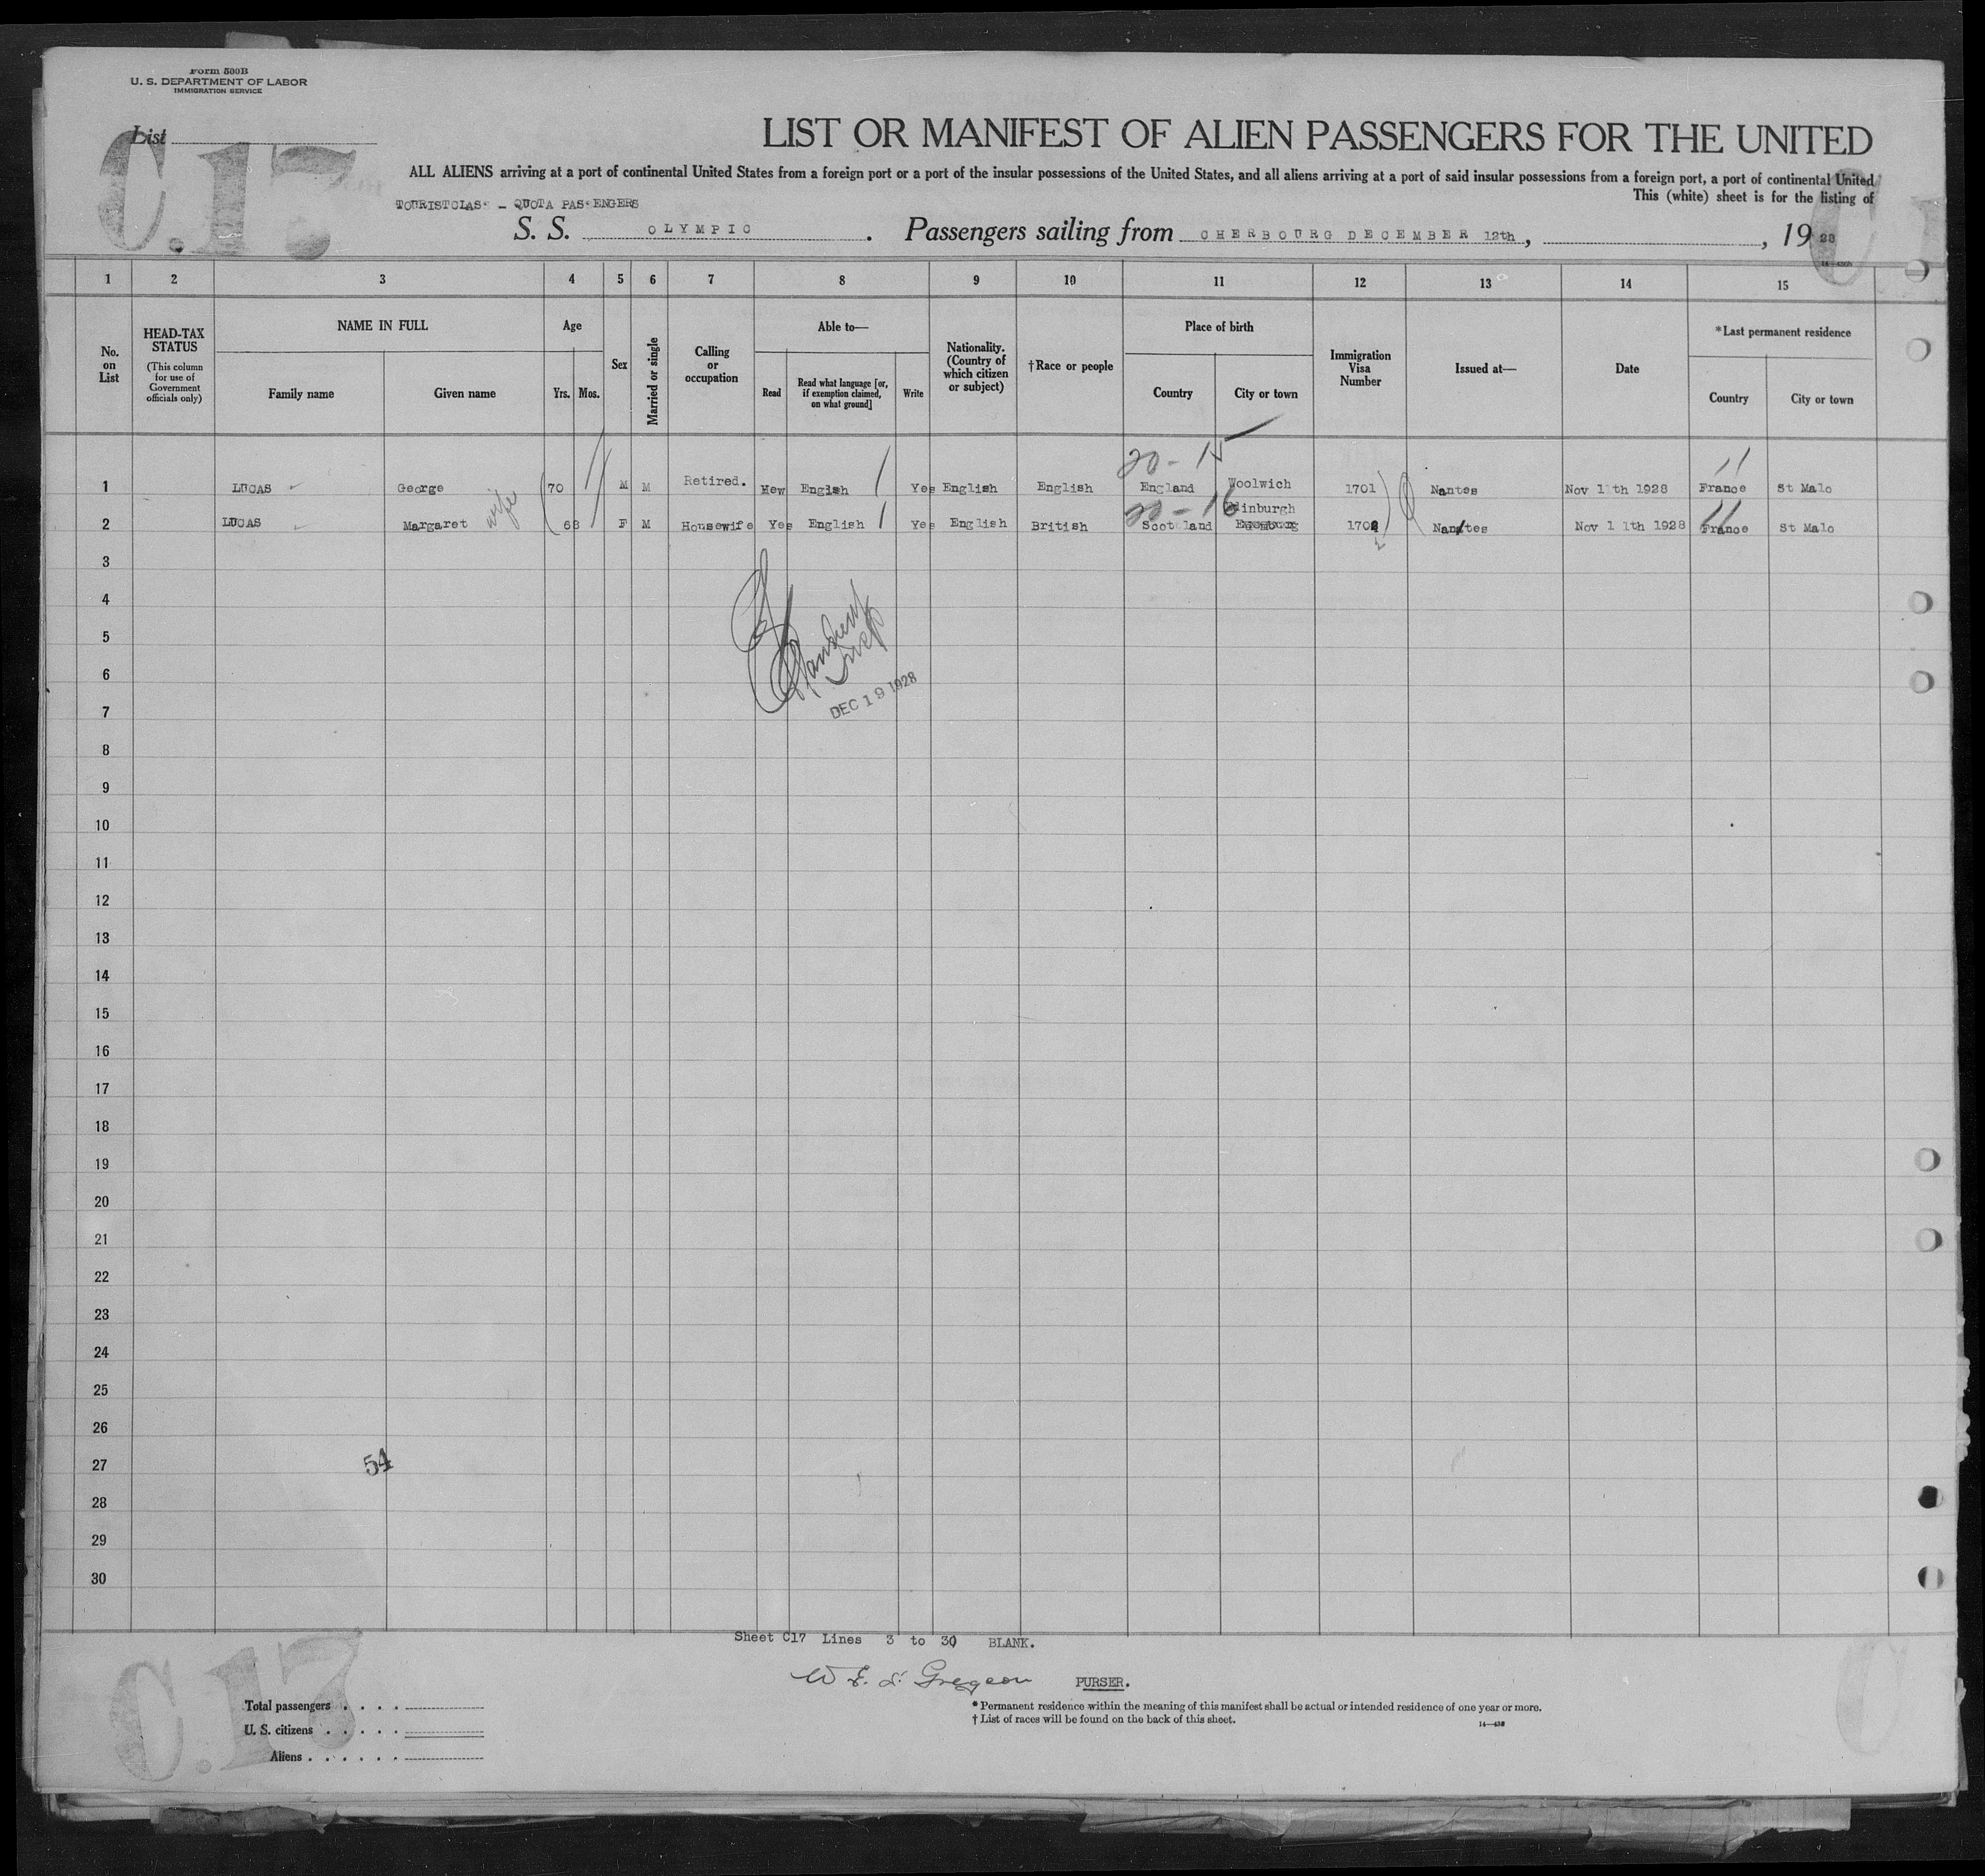 Form 500B
U. S. DEPARTMENT OF LABOR
IMMIGRATION SERVICE
List
C.17
LIST OR MANIFEST OF ALIEN PASSENGERS FOR THE UNITED
ALL ALIENS arriving at a port of continental United States from a foreign port or a port of the insular possessions of the United States, and all aliens arriving at a port of said insular possessions from a foreign port, a port of continental United
This (white) sheet is for the listing of
TOURISTCLAS - QUOTA PASENGERS
S. S. OLYMPIC. Passengers sailing from CHERBOURG DECEMBER 12th, , 1928
1 2 3 4 5 6 7 8 9 10 11 12 13 14 15
No. on List
HEAD-TAX STATUS
(This column for use of Government officials only)
NAME IN FULL
Family name Given name
Age
Yrs. Mos.
Sex
Married or single
Calling or occupation
Able to—
Read
Read what language [or, if exemption claimed, on what ground]
Write
Nationality. (Country of which citizen or subject)
†Race or people
Place of birth
Country City or town
Immigration Visa Number
Issued at—
Date
*Last permanent residence
Country City or town
20-15
1 LUCAS George 70 M M Retired. Yes English Yes English English England Woolwich 1701 Nantes Nov 11th 1928 France St Malo
wife
20-16
2 LUCAS Margaret 68 F M Housewife Yes English Yes English British Scotland Edinburgh 1702 Nantes Nov 11th 1928 France St Malo
3
4
5
6
DEC 19 1928
7
8
9
10
11
12
13
14
15
16
17
18
19
20
21
22
23
24
25
26
27
54
28
29
30
Sheet C17 Lines 3 to 30 BLANK.
PURSER.
C.17
Total passengers
U. S. citizens
Aliens
* Permanent residence within the meaning of this manifest shall be actual or intended residence of one year or more.
† List of races will be found on the back of this sheet.